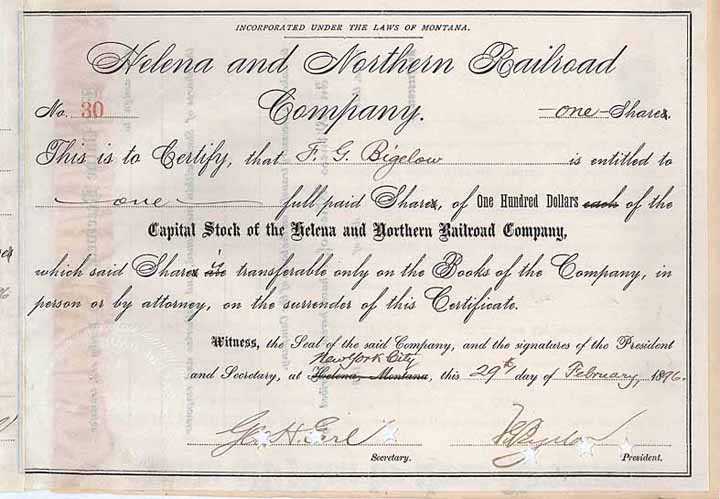 INCORPORATED UNDER THE LAWS OF MONTANA.
Helena and Northern Railroad
No. 30 Company. one Share
This is to Certify, that F. G. Bigelow is entitled to
one full paid Share, of One Hundred Dollars each of the
Capital Stock of the Helena and Northern Railroad Company,
which said Share is are transferable only on the Books of the Company, in
person or by attorney, on the surrender of this Certificate.
Witness, the Seal of the said Company, and the signatures of the President
New York City
and Secretary, at Helena, Montana, this 29th day of February, 1896.
Geo H. Earl
Secretary. President.